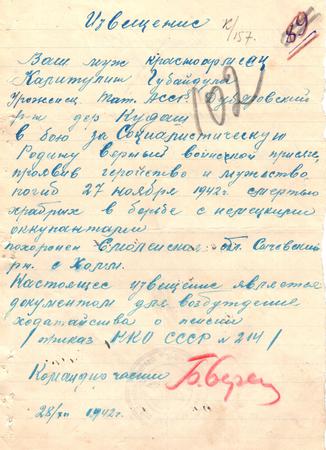 Извещение
к/157.
89
102
Ваш муж красноармеец
Каритулин Губайдула
Уроженец Тат. АССР Дубязовский
р-н дер Кудаш
в бою за Социалистическую
Родину верный воинской присяге,
проявив геройство и мужество
погиб 27 ноября 1942г. смертью
храбрых в борьбе с немецкими
оккупантами
похоронен Смоленская обл. Сычевский
рн. с Холм.
Настоящее извещение является
документом для возбуждения
ходатайства о пенсии
/приказ НКО СССР № 214/
Командир части
28/XII 1942г.